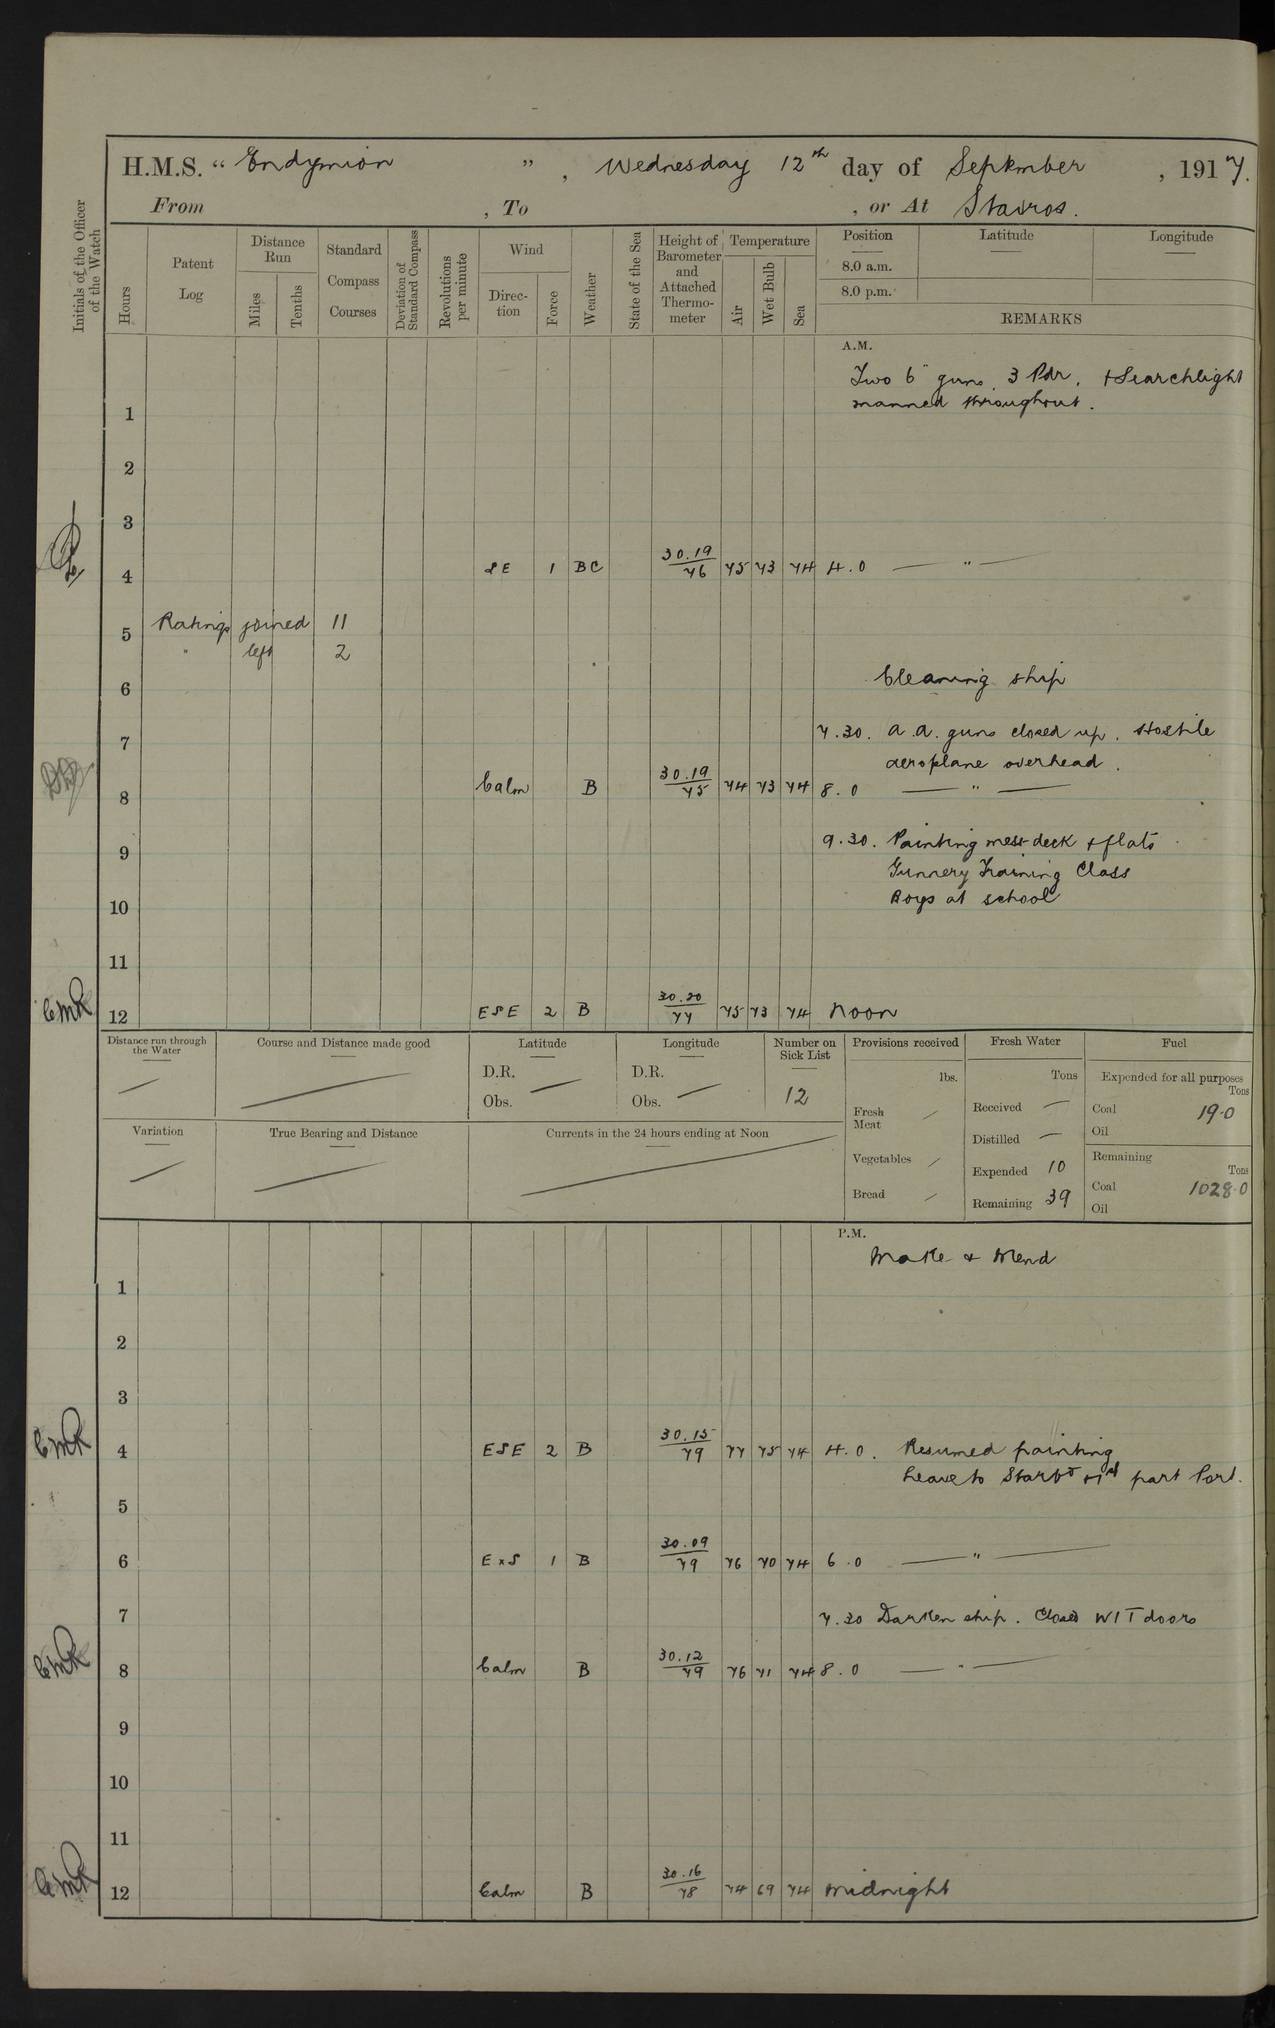 H.M.S. “ Endymion ” , Wednesday 12th day of September , 1917.
From , To , or At Stavros.
Initials of the Officer of the Watch
Hours
Patent Log
Distance Run
Miles
Tenths
Standard Compass Courses
Deviation of Standard Compass
Revolutions per minute
Wind
Direc-tion
Force
Weather
State of the Sea
Height of Barometer and Attached Thermo-meter
Temperature
Air
Wet Bulb
Sea
Position Latitude Longitude
8.0 a.m.
8.0 p.m.
REMARKS
A.M.
Two 6" guns, 3 Pdr, + Searchlight
1 manned throughout.
2
3
4 SE 1 BC 30.19/76 75 73 74 4.0 — " —
5 Ratings joined 11
" left 2
6 Cleaning ship
7 7.30. A.A. guns closed up. Hostile
aeroplane overhead.
8 Calm B 30.19/75 74 73 74 8.0 — " —
9 9.30. Painting mess deck + flats
Gunnery Training Class
10 Boys at school
11
CMR 12 ESE 2 B 30.20/77 75 73 74 Noon
Distance run through the Water
Course and Distance made good
Latitude
D.R. —
Obs.
Longitude
D.R. —
Obs.
Number on Sick List
12
Provisions received
lbs.
Fresh Meat —
Vegetables —
Bread —
Fresh Water
Tons
Received —
Distilled —
Expended 10
Remaining 39
Fuel
Expended for all purposes
Tons
Coal 19.0
Oil
Remaining
Tons
Coal 1028.0
Oil
Variation
True Bearing and Distance
Currents in the 24 hours ending at Noon
P.M.
Make & Mend
1
2
3
CMR 4 ESE 2 B 30.15/79 77 75 74 4.0. Resumed painting
Leave to Starbd + 1st part Port.
5
6 ExS 1 B 30.09/79 76 70 74 6.0 — " —
7 7.30 Darken ship. Closed W/T doors
CMR 8 Calm B 30.12/79 76 71 74 8.0 — " —
9
10
11
CMR 12 Calm B 30.16/78 74 69 74 Midnight